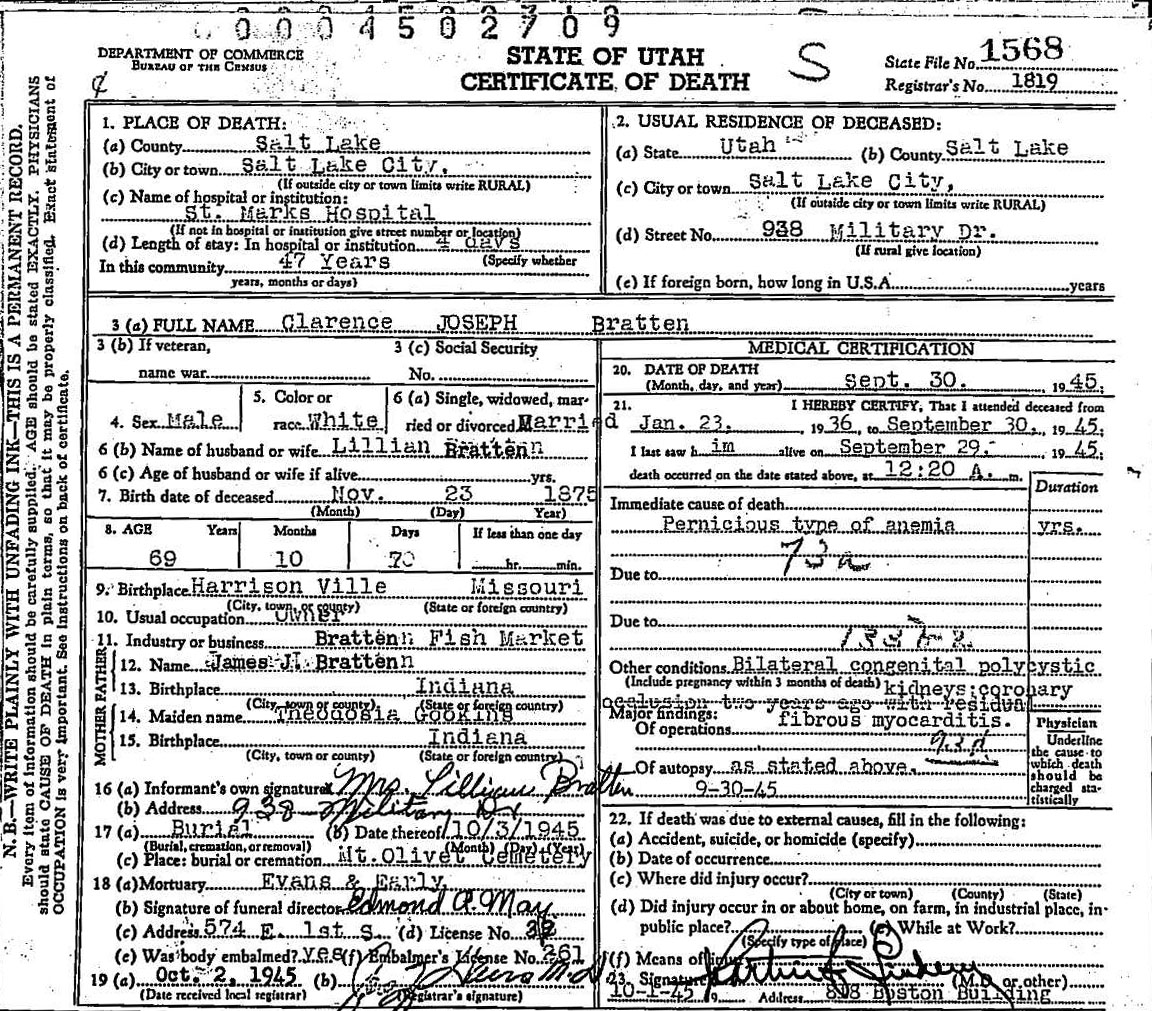 0004502709
DEPARTMENT OF COMMERCE
BUREAU OF THE CENSUS
STATE OF UTAH
CERTIFICATE OF DEATH
S
State File No. 1568
Registrar's No. 1819
N. B.—WRITE PLAINLY WITH UNFADING INK—THIS IS A PERMANENT RECORD.
Every item of information should be carefully supplied. AGE should be stated EXACTLY. PHYSICIANS
should state CAUSE OF DEATH in plain terms, so that it may be properly classified. Exact statement of
OCCUPATION is very important. See instructions on back of certificate.
1. PLACE OF DEATH:
(a) County Salt Lake
(b) City or town Salt Lake City,
(If outside city or town limits write RURAL)
(c) Name of hospital or institution:
St. Marks Hospital
(If not in hospital or institution give street number or location)
(d) Length of stay: In hospital or institution 4 days
In this community 47 Years (Specify whether
years, months or days)
2. USUAL RESIDENCE OF DECEASED:
(a) State Utah (b) County Salt Lake
(c) City or town Salt Lake City,
(If outside city or town limits write RURAL)
(d) Street No. 938 Military Dr.
(If rural give location)
(e) If foreign born, how long in U.S.A. years
3 (a) FULL NAME Clarence JOSEPH Bratten
3 (b) If veteran, 3 (c) Social Security
name war No.
4. Sex Male 5. Color or race White 6 (a) Single, widowed, married or divorced Married
6 (b) Name of husband or wife Lillian Brattenn
6 (c) Age of husband or wife if alive yrs.
7. Birth date of deceased Nov. 23 1875
(Month) (Day) Year)
8. AGE Years Months Days If less than one day
69 10 hr. min.
9. Birthplace Harrison Ville Missouri
(City, town, or county) (State or foreign country)
10. Usual occupation Owner
11. Industry or business Brattenn Fish Market
FATHER
12. Name James J. Brattenn
13. Birthplace Indiana
(City, town or county) (State or foreign country)
MOTHER
14. Maiden name Theodosia Gookins
15. Birthplace Indiana
(City, town or county) (State or foreign country)
16 (a) Informant's own signature Mrs. Lillian Bratten
(b) Address 938 Military Dr
17 (a) Burial (b) Date thereof 10/3/1945
(Burial, cremation, or removal) (Month) (Day) (Year)
(c) Place: burial or cremation Mt. Olivet Cemetery
18 (a) Mortuary Evans & Early
(b) Signature of funeral director Edmond A. May
(c) Address 574 E. 1st S. (d) License No.
(e) Was body embalmed? yes (f) Embalmer's License No. 261
19 (a) Oct. 2, 1945 (b) M.D
(Date received local registrar) (Registrar's signature)
MEDICAL CERTIFICATION
20. DATE OF DEATH
(Month, day, and year) Sept. 30. 1945.
21. I HEREBY CERTIFY, That I attended deceased from
Jan. 23, 1936, to September 30, 1945;
I last saw him alive on September 29, 1945;
death occurred on the date stated above, at 12:20 A. m.
Duration
Immediate cause of death
Pernicious type of anemia yrs.
73a
Due to
Due to
Other conditions Bilateral congenital polycystic
(Include pregnancy within 3 months of death) kidneys;coronary
occlusion two years ago with residual
Major findings: fibrous myocarditis.
Of operations 93d
Of autopsy as stated above.
9-30-45
Physician
Underline
the cause to
which death
should be
charged statistically
22. If death was due to external causes, fill in the following:
(a) Accident, suicide, or homicide (specify)
(b) Date of occurrence
(c) Where did injury occur?
(City or town) (County) (State)
(d) Did injury occur in or about home, on farm, in industrial place, in
public place? (e) While at Work?
(Specify type of place)
(f) Means of injury
23. Signature (M.D. or other)
10-1-45 Address 808 Boston Building